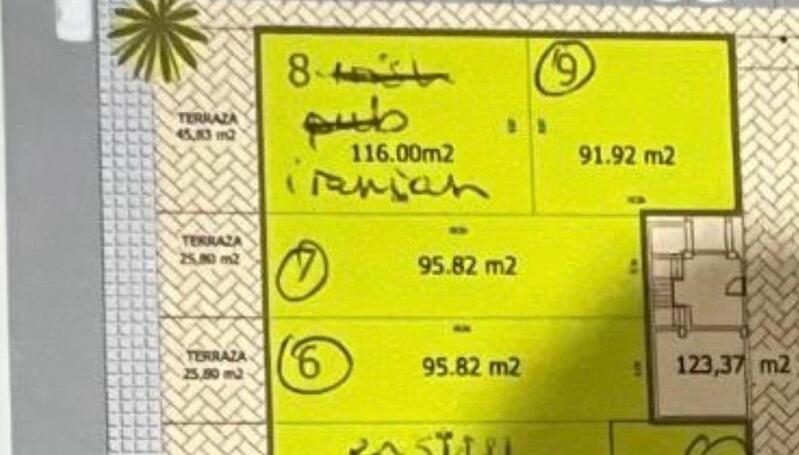 8 irish
pub
116.00m2
iranian
9
91.92 m2
TERRAZA
45,83 m2
7
95.82 m2
TERRAZA
25,80 m2
6
95.82 m2
TERRAZA
25,80 m2
123,37 m2